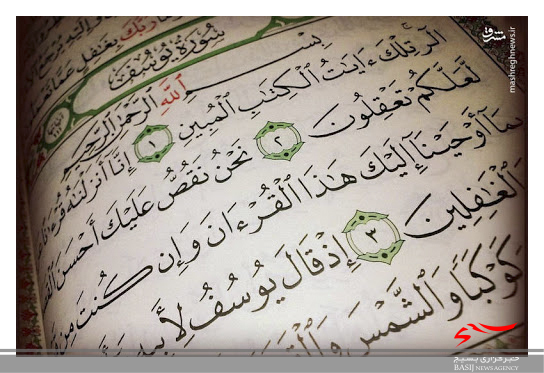 سُورَةُ يُوسُفَ
بِسْمِ اللَّهِ الرَّحْمَٰنِ الرَّحِيمِ
الٓر ۚ تِلْكَ ءَايَٰتُ ٱلْكِتَٰبِ ٱلْمُبِينِ ١ إِنَّآ أَنزَلْنَٰهُ قُرْءَٰنًا
لَّعَلَّكُمْ تَعْقِلُونَ ٢ نَحْنُ نَقُصُّ عَلَيْكَ أَحْسَنَ
بِمَآ أَوْحَيْنَآ إِلَيْكَ هَٰذَا ٱلْقُرْءَانَ وَإِن كُنتَ مِن
ٱلْغَٰفِلِينَ ٣ إِذْ قَالَ يُوسُفُ لِأَبِيهِ
كَوْكَبًا وَٱلشَّمْسَ وَٱلْقَمَرَ
مشرق
mashreghnews.ir
خبرگزاری بسیج
BASIJ NEWS AGENCY